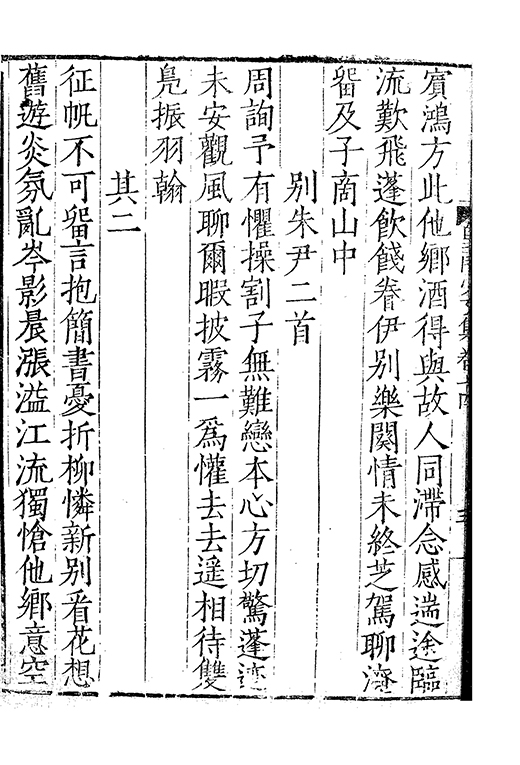 賓鴻方此他鄉酒得與故人同滯念感遄途臨
流歎飛蓬飲餞眷伊别樂闋情未終芝駕聊淹
畱及子商山中
别朱尹二首
周詢予有懼操割子無難戀本心方切驚蓬迹
未安觀風聊爾暇披霧一爲懽去去遥相待雙
鳧振羽翰
其二
征帆不可畱言抱簡書憂折柳憐新别看花想
舊遊炎氛亂岑影晨漲溢江流獨愴他鄉意空